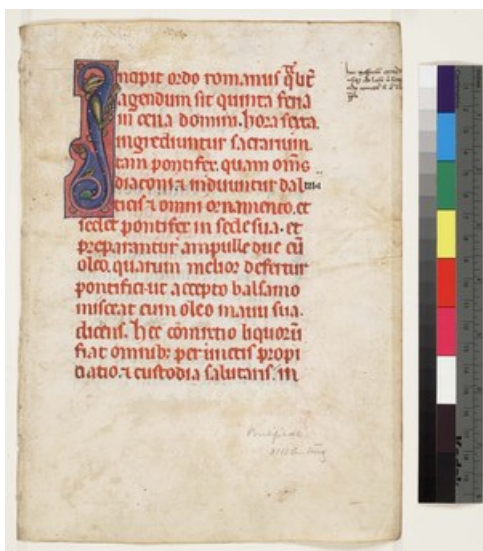 Incipit ordo romanus qͣlit̄
agendum sit quinta feria
in cena domini. hora sexta.
ingrediuntur sacrarium.
tam pontifex. quam om̄s
diaconi ⁊ induuntur dal
ticis ⁊ omni ornamento. et
sedet pontifex in sede sua. et
preparantur ampulle due cū
oleo. quarum melior defertur
pontifici. ut accepto balsamo
misceat cum oleo manu sua.
dicens. hec com̄ixtio liquorū
fiat omnibꝫ per unctis propi
ciatio. ⁊ custodia salutaris. in
Pontificale
XIII Century
Kodak